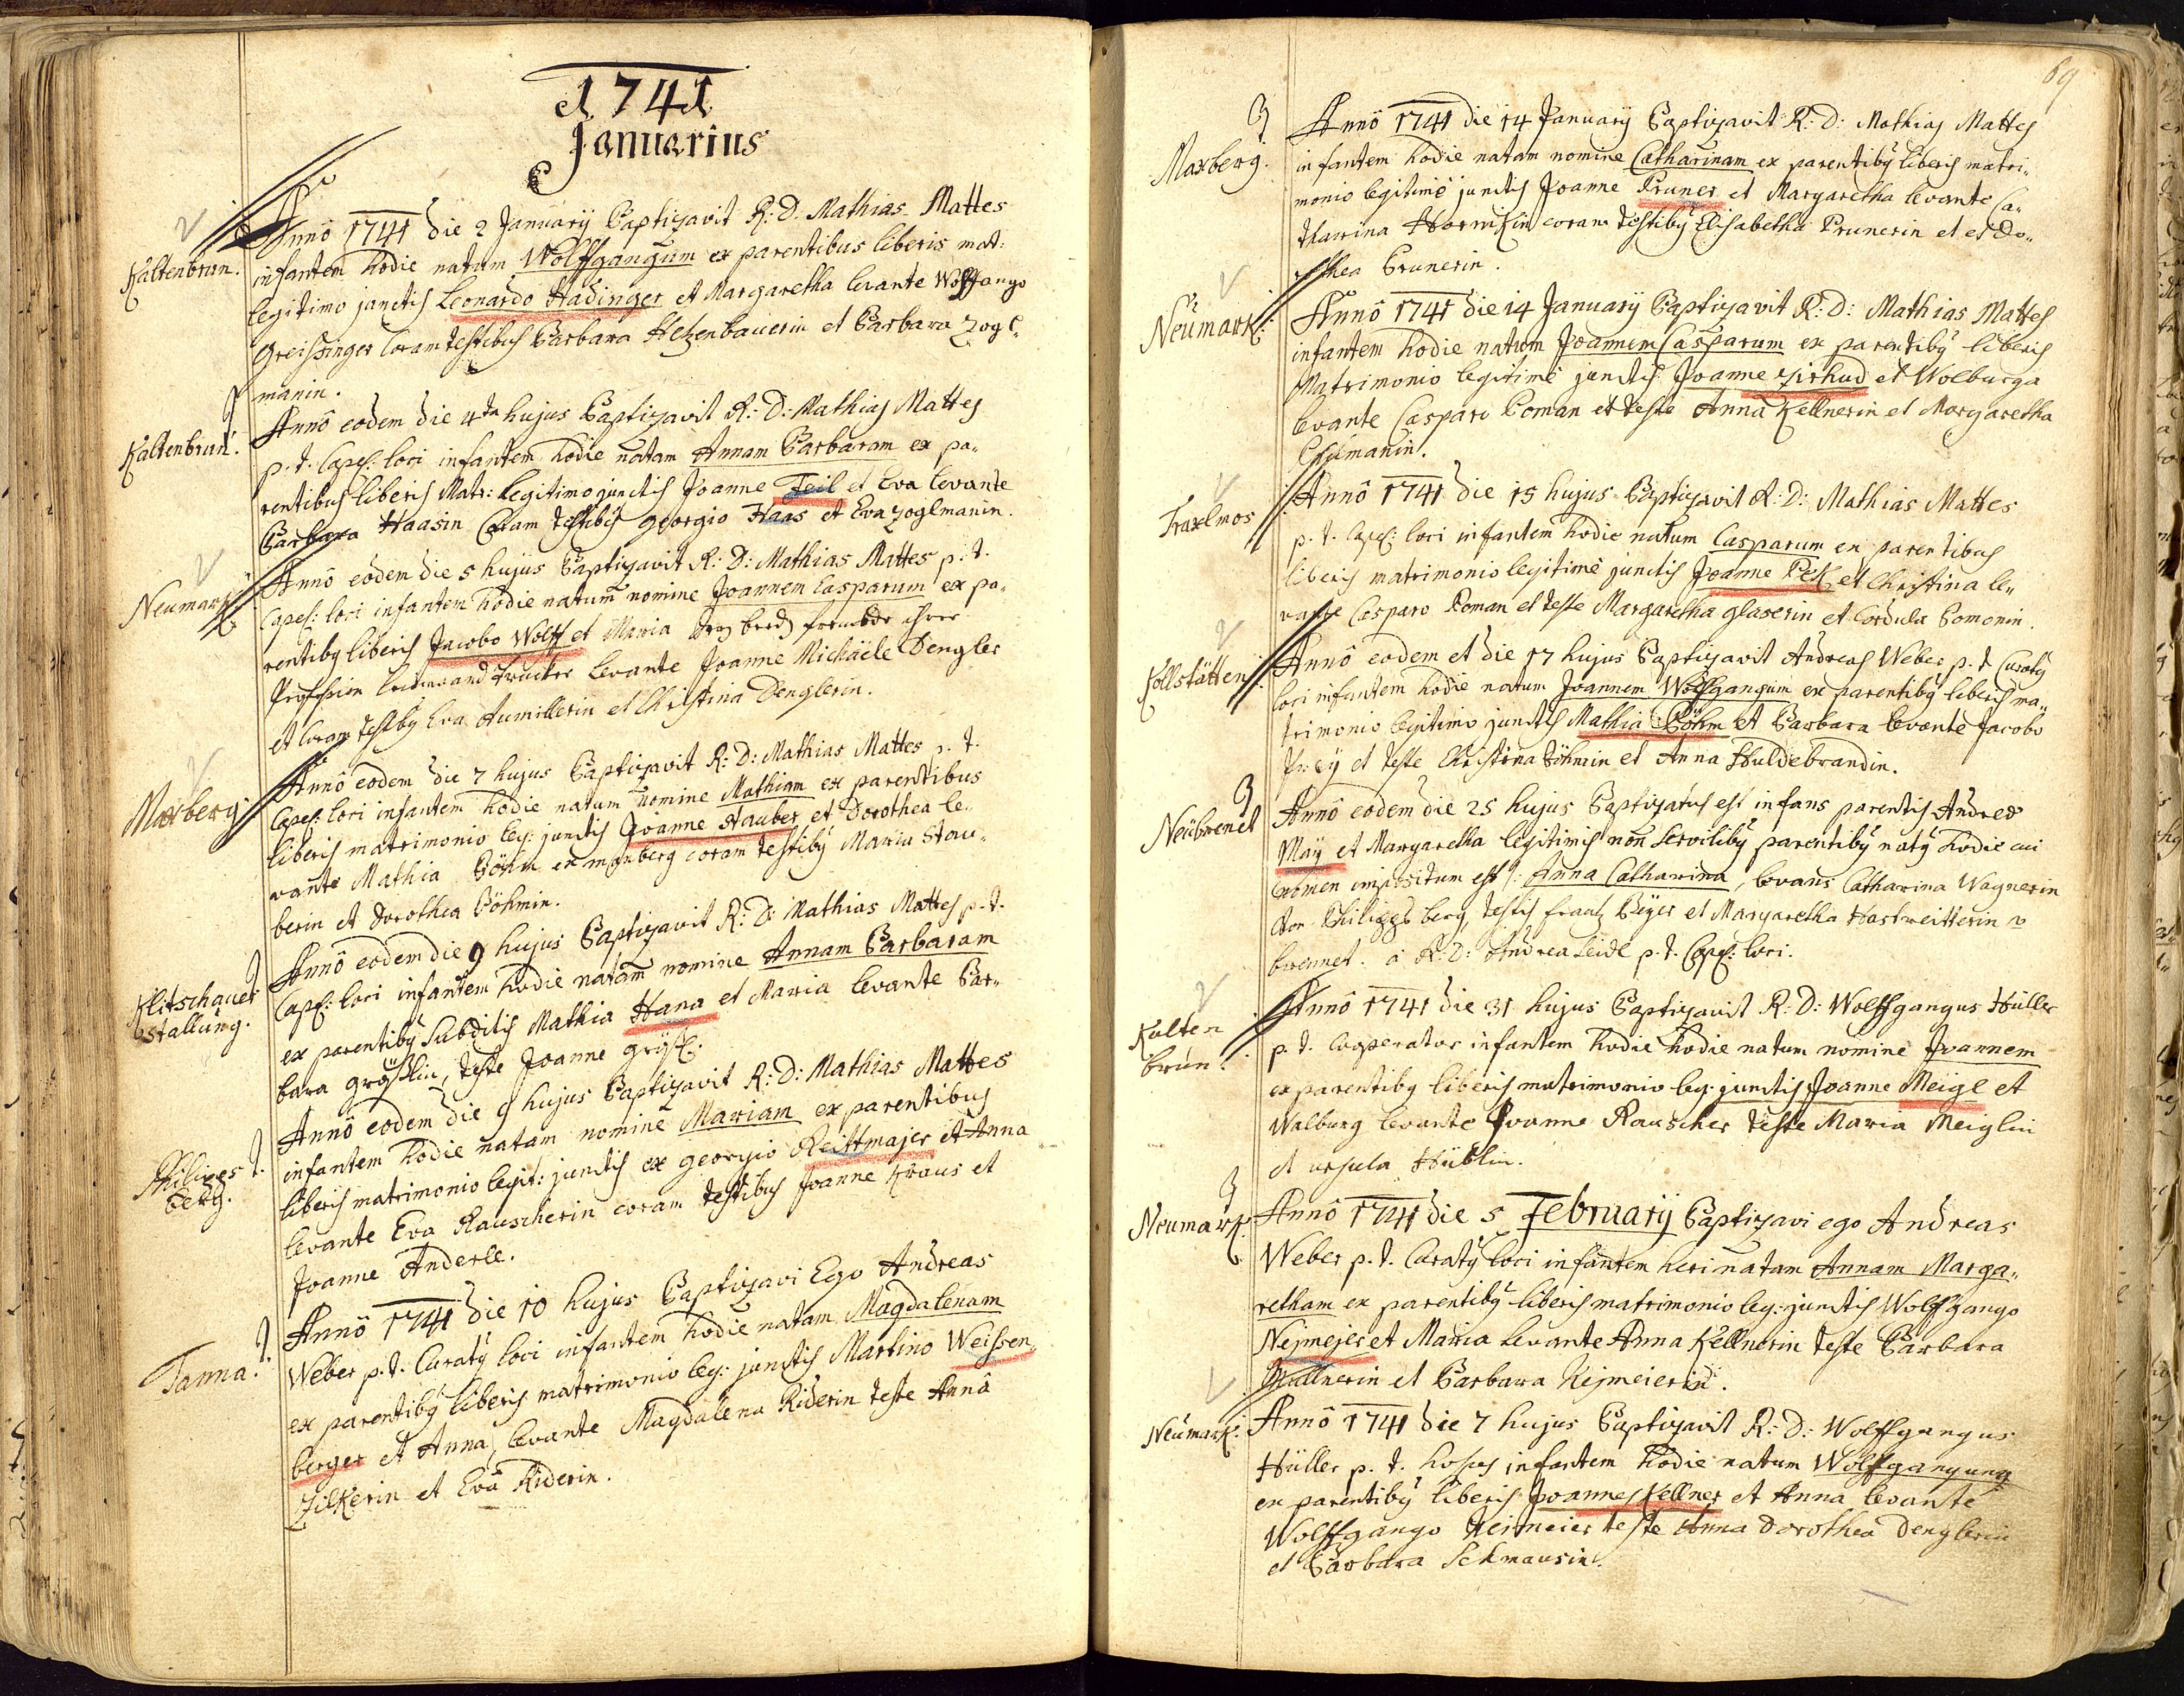 1741
Januarius
Kaltenbrun.
Anno 1741 die 2 January Baptizavit R: D. Mathias Mattes
infantem hodie natum Wolffgangum ex parentibus liberis mat:
legitimo junctis Leonardo Hadinger et Margaretha levante Wolffgango
Greissinger coram testibus Barbara Hetzenbauerin et Barbara Zogl-
manin.
Kaltenbrun.
Anno eodem die 4ta hujus Baptizavit R: D: Mathias Mattes
p. t. Capel: loci infantem hodie natam Annam Barbaram ex pa-
rentibus liberis Matr: Legitimo junctis Joanne Feil et Eva levante
Barbara Haasin Coram testibus Georgio Haas et Eva Zoglmanin.
Neumark
Anno eodem die 5 hujus Baptizavit R: D: Mathias Mattes p. t.
Capel: loci infantem hodie natum nomine Joannem Casparum ex pa-
rentibus liberis Jacobo Wolff et Maria ihrer
Profession trucker Levante Joanne Michäele Dengler
et coram testibus Eva Aumillerin et Christina Denglerin.
Maxberg.
Anno eodem die 7 hujus Baptizavit R: D: Mathias Mattes p. t.
Capel: loci infantem hodie natum nomine Mathiam ex parentibus
liberis matrimonio leg: junctis Joanne Stauber et Dorothea le-
vante Mathia Böhm ex maxberg coram testibus Maria Stau-
berin et Dorothea Böhmin.
Klitschauer
stallung.
Anno eodem die 9 hujus Baptizavit R: D: Mathias Mattes p. t.
Capel: loci infantem hodie natam nomine Annam Barbaram
ex parentibus Subditis Mathia Hana et Maria levante Bar-
bara gröslin, teste Joanne grösl.
Philipes
berg.
Anno eodem die 9 hujus Baptizavit R: D: Mathias Mattes
infantem hodie natam nomine Mariam ex parentibus
liberis matrimonio legit: junctis ex georgio Reittmajer et Anna
levante Eva Rauscherin coram testibus Joanne Kraus et
Joanne Anderle.
Tanna.
Anno 1741 die 10 hujus Baptizavi Ego Andreas
Weber p. t. Curatus loci infantem hodie natam Magdalenam
ex parentibus liberis matrimonio leg: junctis Martino Weissen-
berger et Anna, levante Magdalena Riderin teste Anna
Zilkerin et Eva Riderin.
69
Maxberg.
Anno 1741 die 14 January Baptizavit R: D: Mathias Mattes
infantem hodie natam nomine Catharinam ex parentibus liberis matri-
monio legitime junctis Joanne Pruner et Margaretha levante Ca-
tharina coram testibus Elisabetha Prunerin et et Do-
rothea Brunerin.
Neumark:
Anno 1741 die 14 January Baptizavit R: D: Mathias Mattes
infantem hodie natum Joannem Casparum ex parentibus liberis
Matrimonio legitime junctis Joanne Zirhud et Wolburga
levante Casparo Poman et teste Anna Kellnerin et Margaretha
Traxlmos
Anno 1741 die 15 hujus Baptizavit R: D: Mathias Mattes
p. t. Capel: loci infantem hodie natum Casparum ex parentibus
liberis matrimonio legitime junctis Joanne Pek et Christina le-
vante Casparo Poman et teste Margaretha glaserin et Cordula Bomonin.
Kollstätten
Anno eodem et die 17 hujus Baptizavit Andreas Weber p. t. Curatus
loci infantem hodie natum Joannem Wolffgangum ex parentibus liberis ma-
trimonio legitimo junctis Mathia Böhm et Barbara levante Jacobo
Frey et teste Christina Böhmin et Anna Huldebrandin.
Neübrenet
Anno eodem die 25 hujus Baptizatus est infans parentis Andreæ
Maÿ et Margaretha legitimis non servilibus parentibus natus hodie cui
nomen impositum est: Anna Catharina, levans Catharina Wagnerin
von Philippsberg, testis frantz Beÿer et Margaretha Hastreitterin v
brennet. à R: D: Andrea Seidl p. t. Capel: loci.
Kalten
brun.
Anno 1741 die 31 hujus Baptizavit R: D: Wolffgangus Hüller
p. t. Cooperator infantem hodie hodie natum nomine Joannem
ex parentibus liberis matrimonio leg: junctis Joanne Meigl et
Walburg levante Joanne Rauscher teste Maria Meiglin
et ursula Hüblin.
Neumark.
Anno 1741 die 5 February Baptizavi ego Andreas
Weber p. t. Curatus loci infantem heri natam Annam Marga-
retham ex parentibus liberis matrimonio leg: junctis Wolffgango
Nejmejer et Maria levante Anna Kellnerin teste Barbara
Müllnerin et Barbara Nejmeierin.
Neümark:
Anno 1741 die 7 hujus Baptizavit R: D: Wolffgangus
Hüller p. t. infantem hodie natum Wolffgangung
ex parentibus liberis Joannes Kellner et Anna levante
Wolffgango Neimeier teste Anna Dorothea Denglerin
et Barbara Schmausin.